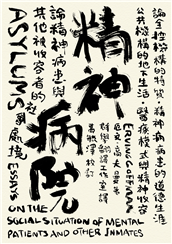 論全控機構的特質・精神病患的道德生涯・
公共機構的地下生活・醫療模式與精神收容
ERVING GOFFMAN
厄文・高夫曼 著
群學翻譯工作室 譯
萬毓澤 校訂
精神
病院
論精神病患與
其他被收容者的
處境
ASYLUMS
ESSAYS
ON THE
SOCIAL SITUATION OF MENTAL
PATIENTS AND OTHER INMATES